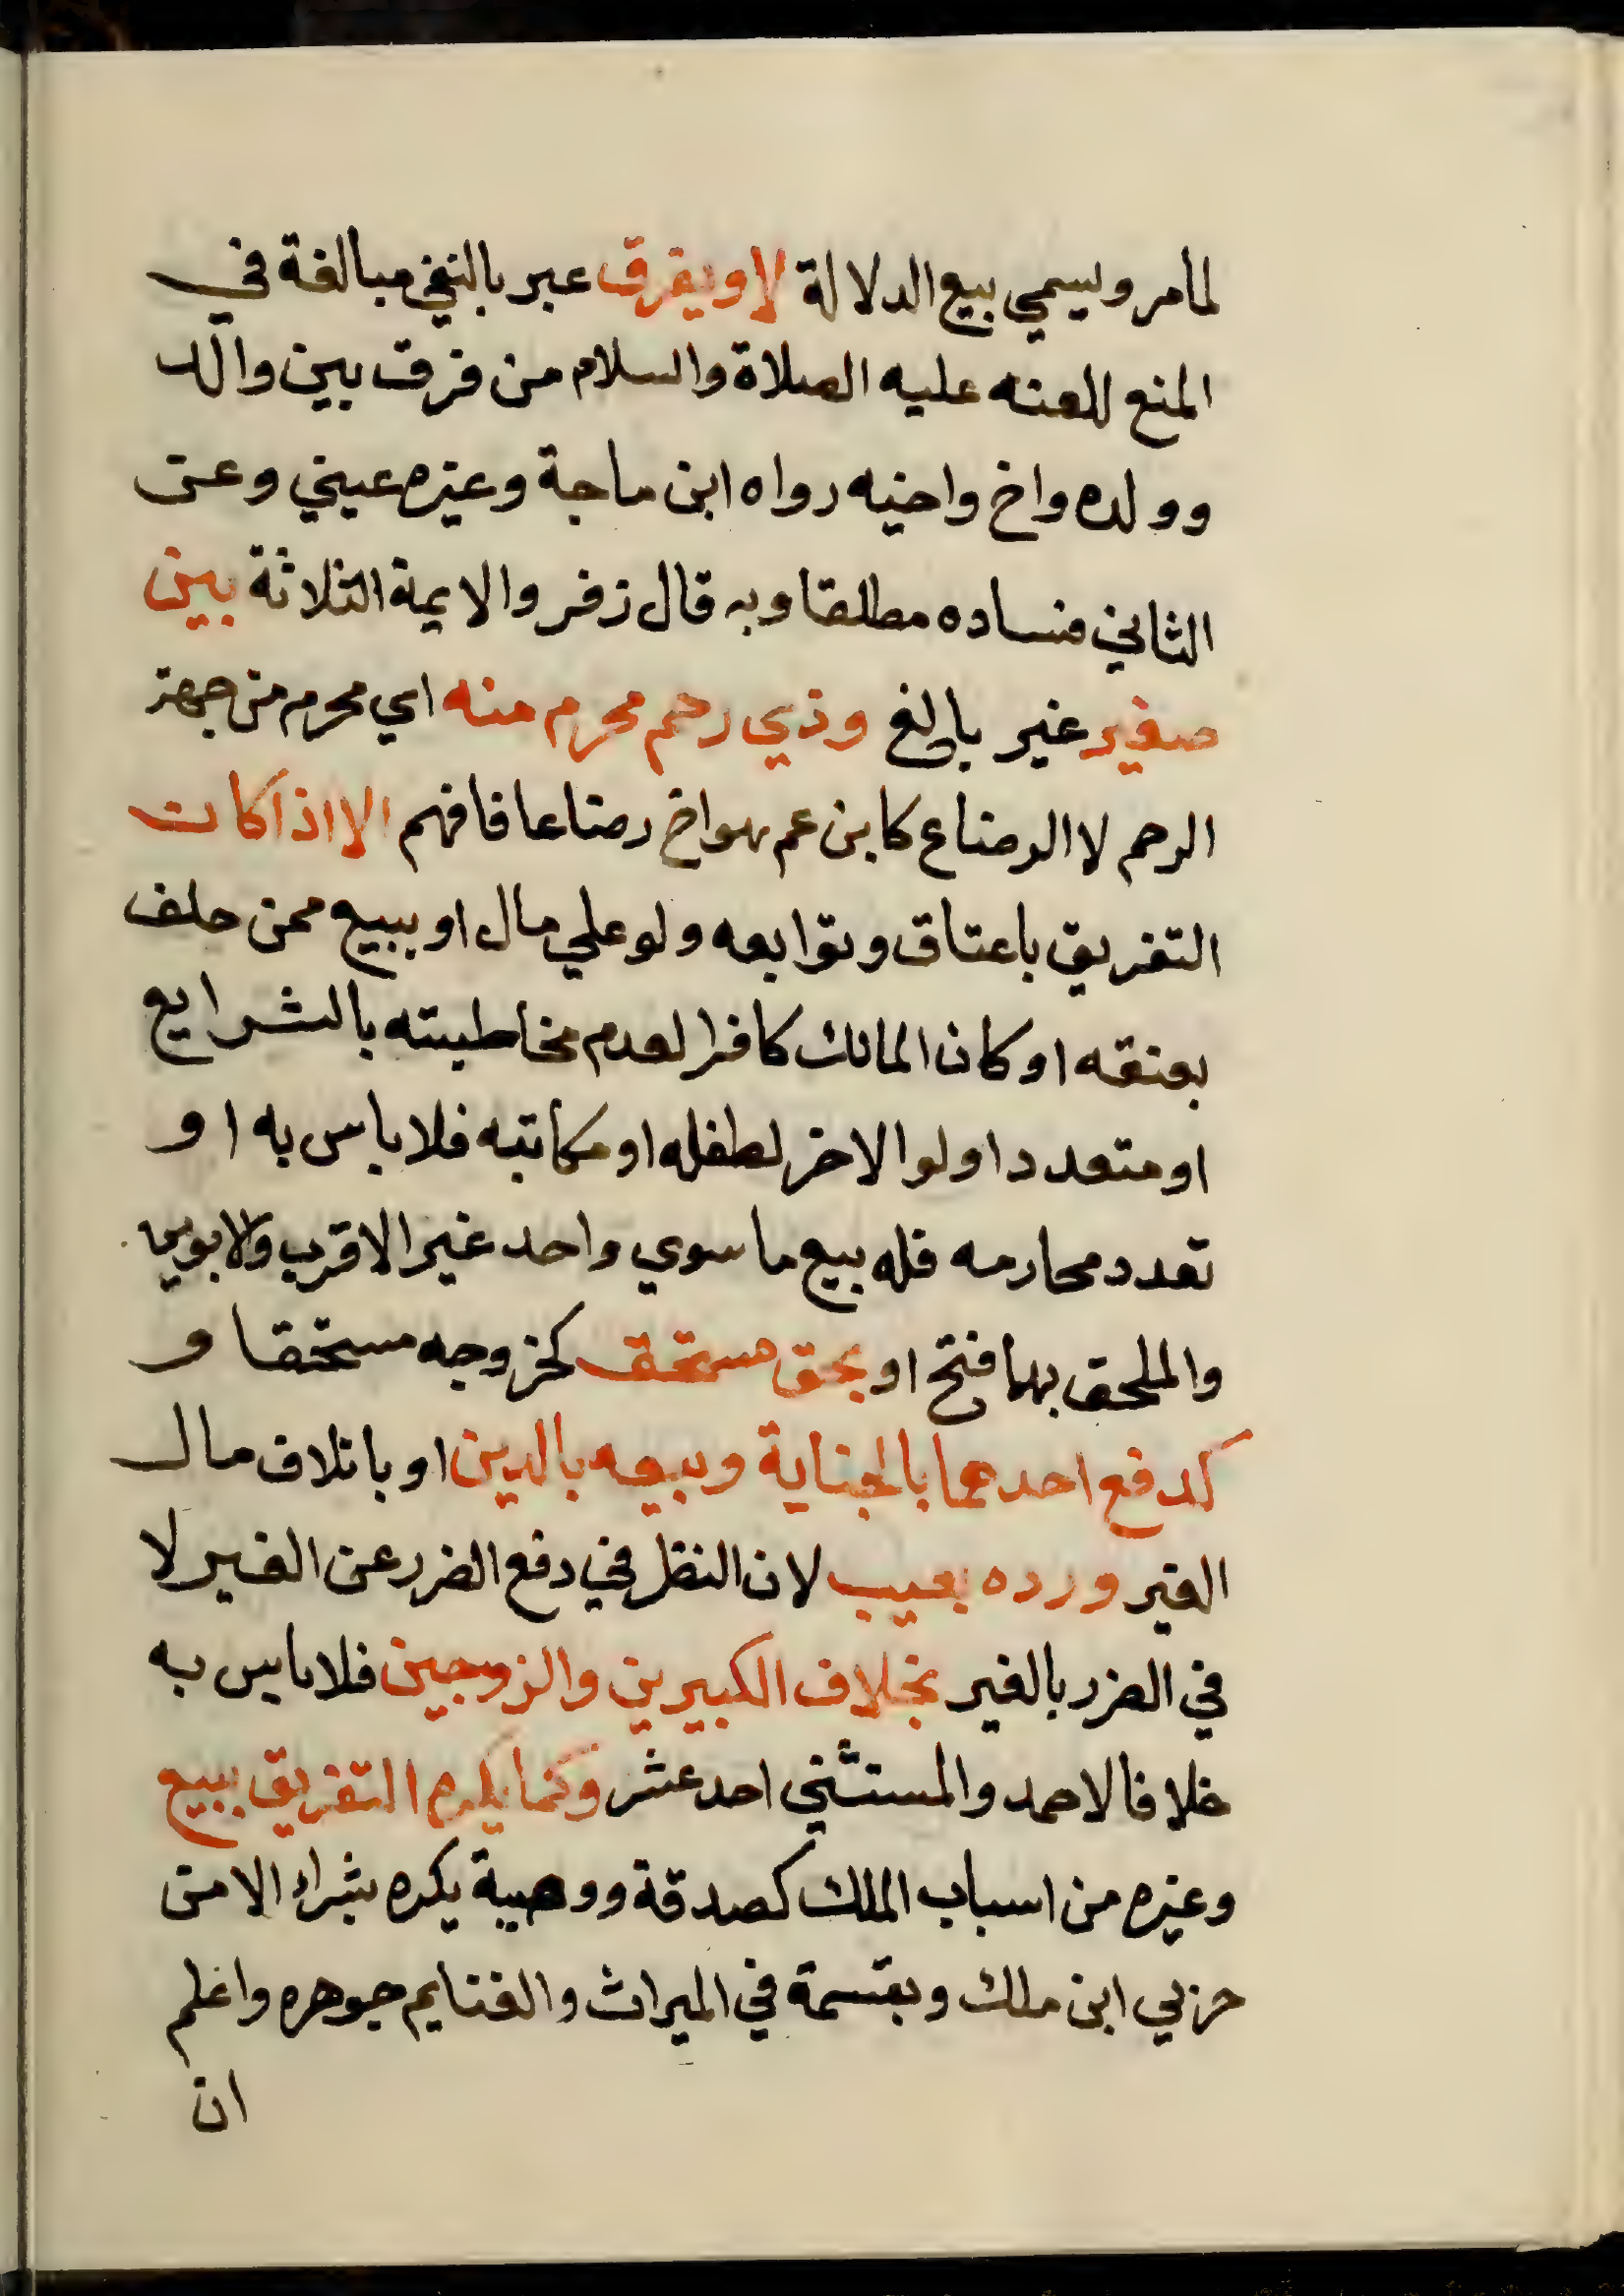 لمامر ويسمي بيع الدلالة لا ويفرق عبر بالنفي مبالغة في
المنع للعنه عليه الصلاة والسلام من فرق بين والد
وولده واخ واخيه رواه ابن ماجة وغيره عيني وعن
الثاني فساده مطلقا وبه قال زفر والايمة الثلاثة بين
صغير غير بالغ وذي رحم محرم منه اي محرم من جهة
الرحم لا الرضاع كابن عم هو اخ رضاعا فافهم الا اذا كان
التفريق باعتاق وتوابعه ولو علي مال او ببيع ممن حلف
بعتقه او كان المالك كافرا لعدم مخاطبته بالشرايع
او متعددا ولو الاخر لطفله او مكاتبه فلا باس به او
تعدد محارمه فله بيع ما سوي واحد غير الاقرب والابوين
والملحق بهما فتح او بحق مستحق كخروجه مستحقا و
كدفع احدهما بالجناية وبيعه بالدين او باتلاف مال
الغير ورده بعيب لان النظر في دفع الضرر عن الغير لا
في الضرر بالغير بخلاف الكبيرين والزوجين فلا باس به
خلافا لاحمد والمستثني احد عشر وكما يكره التفريق ببيع
وغيره من اسباب الملك كصدقة ووصية يكره بشراء الا من
حربي ابن ملك وبقسمة في الميراث والغنايم جوهره واعلم
ان